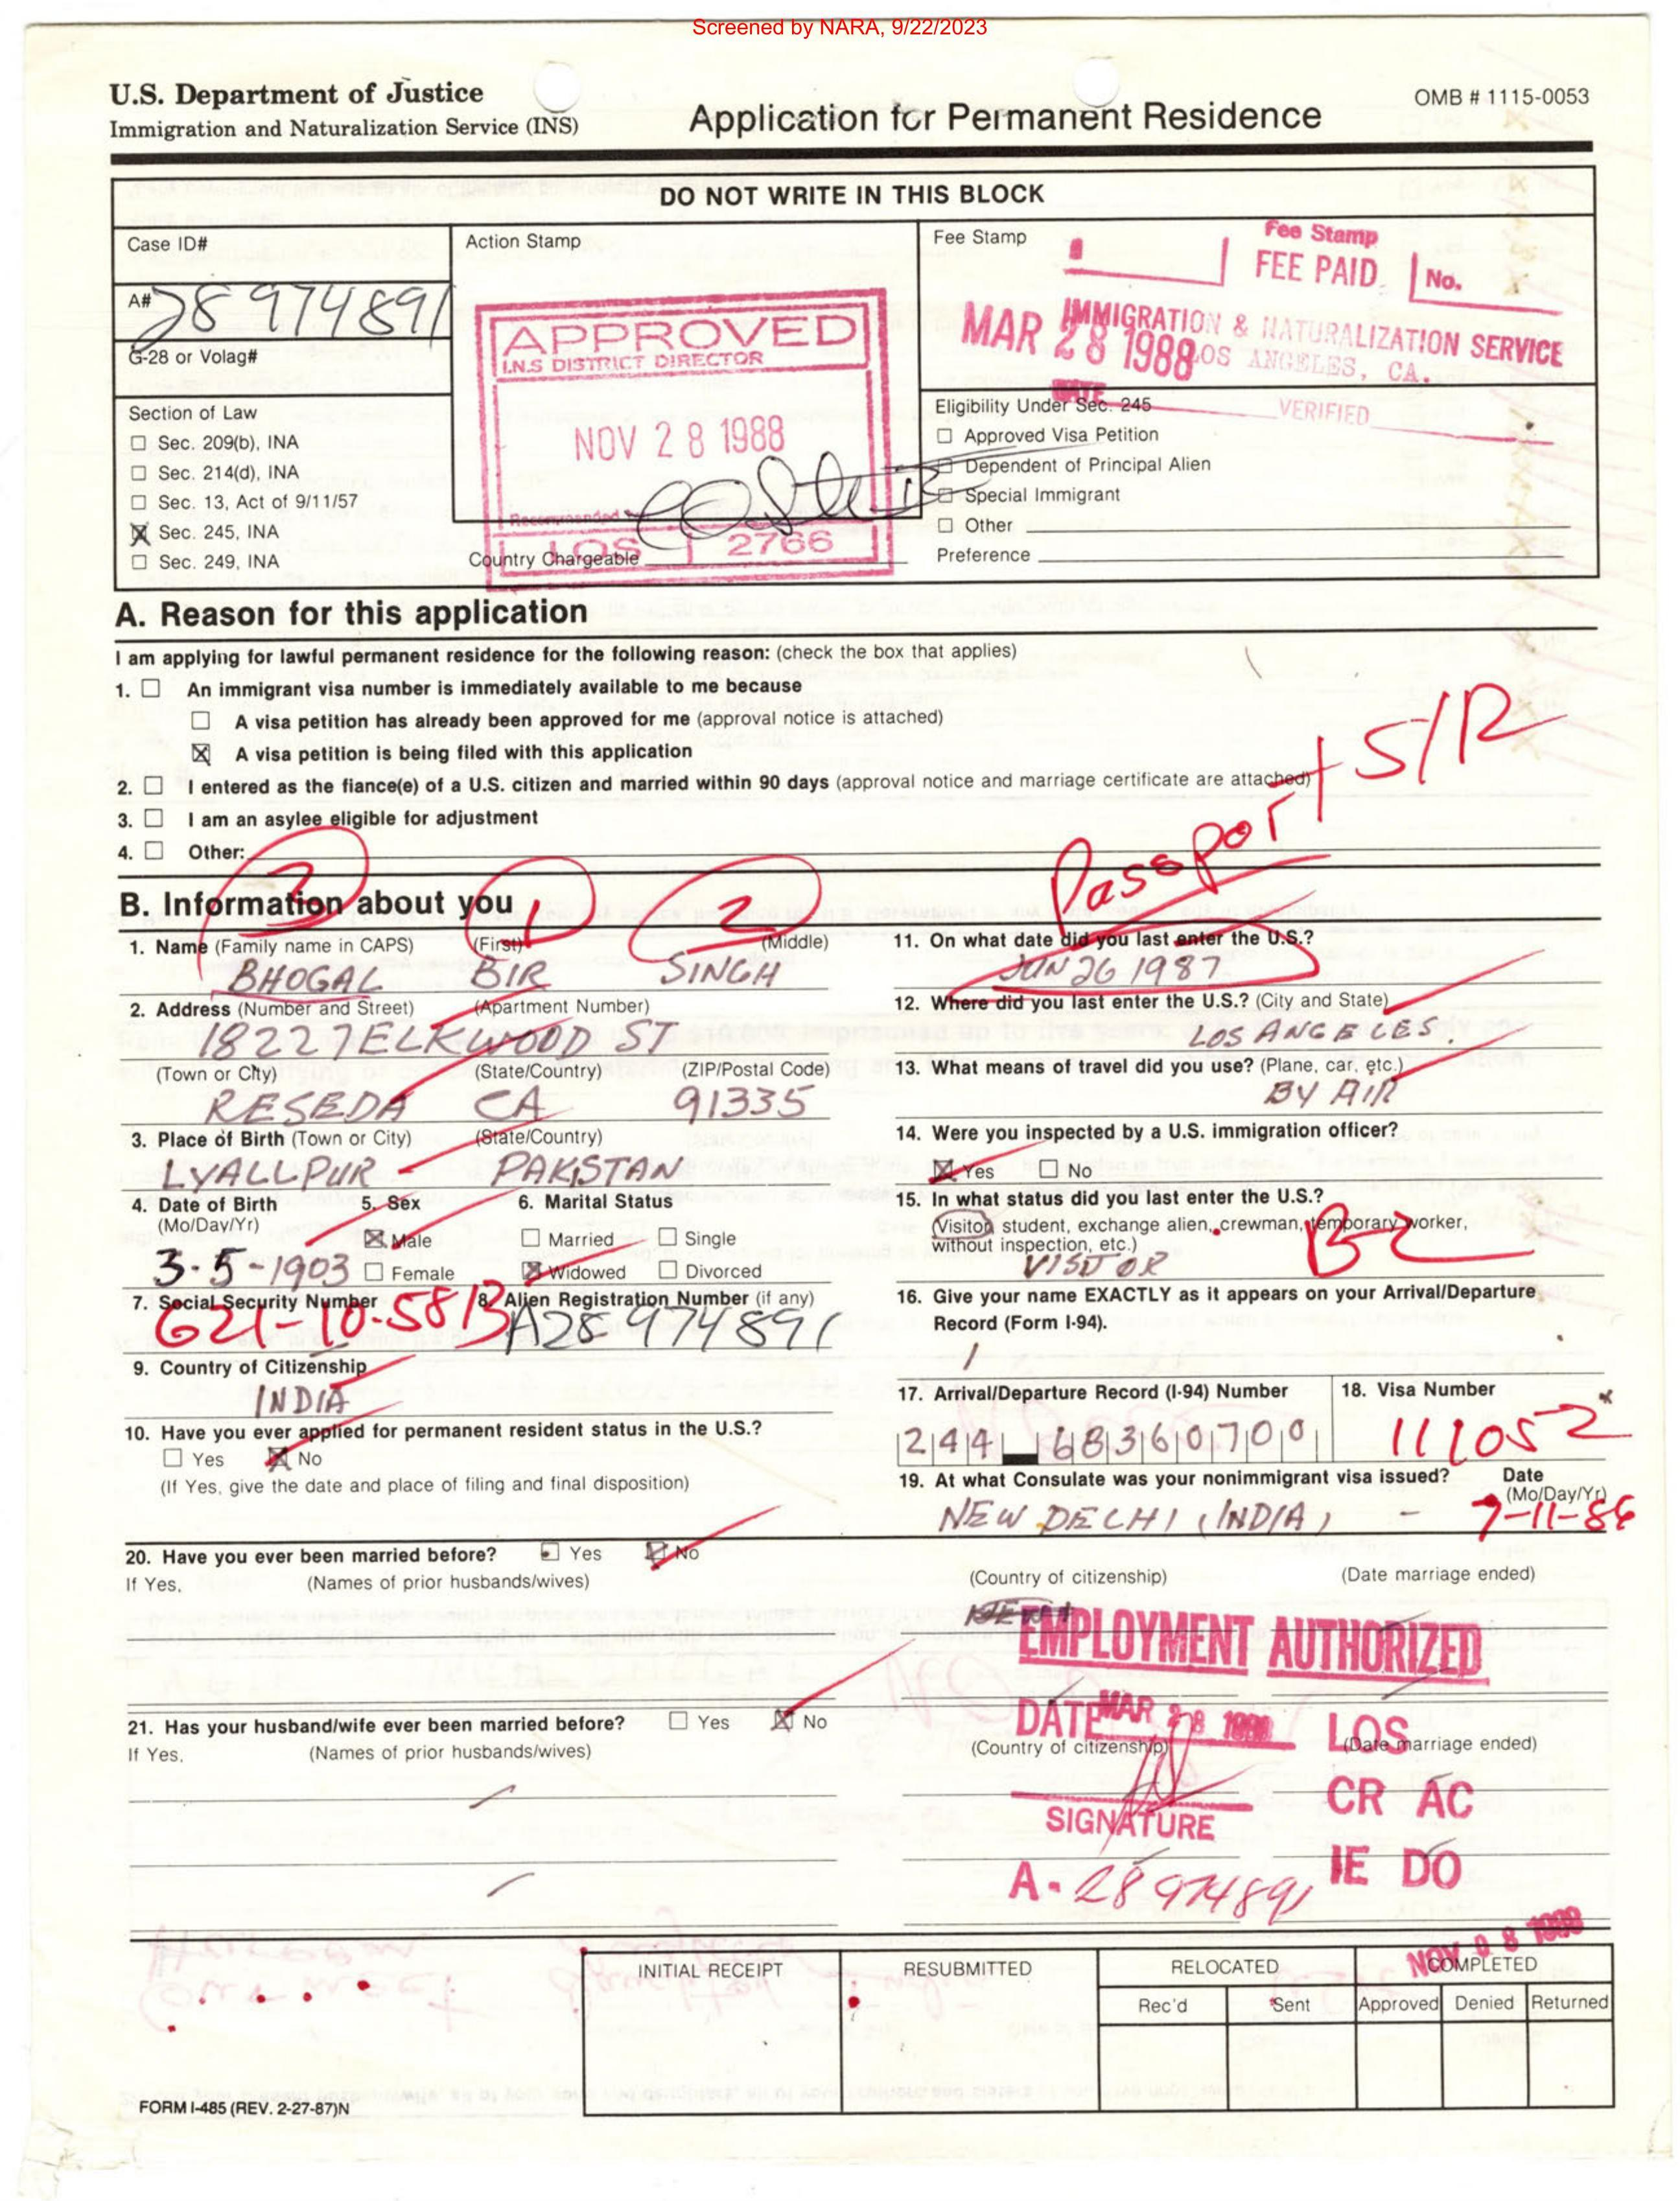 Screened by NARA, 9/22/2023
U.S. Department of Justice
Immigration and Naturalization Service (INS)
Application for Permanent Residence
OMB # 1115-0053
DO NOT WRITE IN THIS BLOCK
Case ID#
A# 28974891
G-28 or Volag#
Section of Law
☐ Sec. 209(b), INA
☐ Sec. 214(d), INA
☐ Sec. 13, Act of 9/11/57
☒ Sec. 245, INA
☐ Sec. 249, INA
Action Stamp
APPROVED
I.N.S DISTRICT DIRECTOR
NOV 28 1988
Recommended by
LOS 2766
Country Chargeable
Fee Stamp
Fee Stamp
FEE PAID No.
IMMIGRATION & NATURALIZATION SERVICE
MAR 28 1988
LOS ANGELES, CA.
DATE VERIFIED
Eligibility Under Sec. 245
☐ Approved Visa Petition
☐ Dependent of Principal Alien
☐ Special Immigrant
☐ Other
Preference
A. Reason for this application
I am applying for lawful permanent residence for the following reason: (check the box that applies)
1. ☐ An immigrant visa number is immediately available to me because
☐ A visa petition has already been approved for me (approval notice is attached)
☒ A visa petition is being filed with this application
2. ☐ I entered as the fiance(e) of a U.S. citizen and married within 90 days (approval notice and marriage certificate are attached)
3. ☐ I am an asylee eligible for adjustment
4. ☐ Other:
Passport S/R
3 1 2
B. Information about you
1. Name (Family name in CAPS) (First) (Middle)
BHOGAL BIR SINGH
2. Address (Number and Street) (Apartment Number)
18227 ELKWOOD ST
(Town or City) (State/Country) (ZIP/Postal Code)
RESEDA CA 91335
3. Place of Birth (Town or City) (State/Country)
LYALLPUR PAKISTAN
4. Date of Birth (Mo/Day/Yr)
3-5-1903
5. Sex
☒ Male
☐ Female
6. Marital Status
☐ Married ☐ Single
☒ Widowed ☐ Divorced
7. Social Security Number
621-10-5813
8. Alien Registration Number (if any)
A28 974891
9. Country of Citizenship
INDIA
10. Have you ever applied for permanent resident status in the U.S.?
☐ Yes ☒ No
(If Yes, give the date and place of filing and final disposition)
11. On what date did you last enter the U.S.?
JUN 26 1987
12. Where did you last enter the U.S.? (City and State)
LOS ANGELES.
13. What means of travel did you use? (Plane, car, etc.)
BY AIR
14. Were you inspected by a U.S. immigration officer?
☒ Yes ☐ No
15. In what status did you last enter the U.S.?
(Visitor, student, exchange alien, crewman, temporary worker,
without inspection, etc.)
VISITOR B-2
16. Give your name EXACTLY as it appears on your Arrival/Departure
Record (Form I-94).
17. Arrival/Departure Record (I-94) Number
244 68360700
18. Visa Number
111052
19. At what Consulate was your nonimmigrant visa issued? Date
(Mo/Day/Yr)
NEW DELHI, INDIA, - 7-11-86
20. Have you ever been married before? ☐ Yes ☒ No
If Yes, (Names of prior husbands/wives) (Country of citizenship) (Date marriage ended)
EMPLOYMENT AUTHORIZED
21. Has your husband/wife ever been married before? ☐ Yes ☒ No
If Yes, (Names of prior husbands/wives) (Country of citizenship) (Date marriage ended)
DATE MAR 28 1988 LOS
CR AC
SIGNATURE
IE DO
A- 28974891
NOV 08 1988
INITIAL RECEIPT
RESUBMITTED
RELOCATED
COMPLETED
Rec'd Sent Approved Denied Returned
FORM I-485 (REV. 2-27-87)N